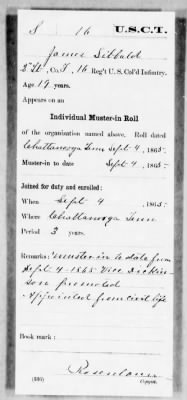 S 16 U.S.C.T.
James Sibbald
2" Lt., Co. I, 16 Reg't U. S. Col'd Infantry.
Age 19 years.
Appears on an
Individual Muster-in Roll
of the organization named above. Roll dated
Chattanooga Tenn Sept. 4, 1865.
Muster-in to date Sept 4, 1865.
Joined for duty and enrolled:
When Sept 4, 1865.
Where Chattanooga Tenn
Period 3 years.
Remarks: muster-in to date from
Sept. 4-1865 Vice Dickin-
son promoted
Appointed from civil life
Book mark:
Rosenbaum
(336) Copyist.